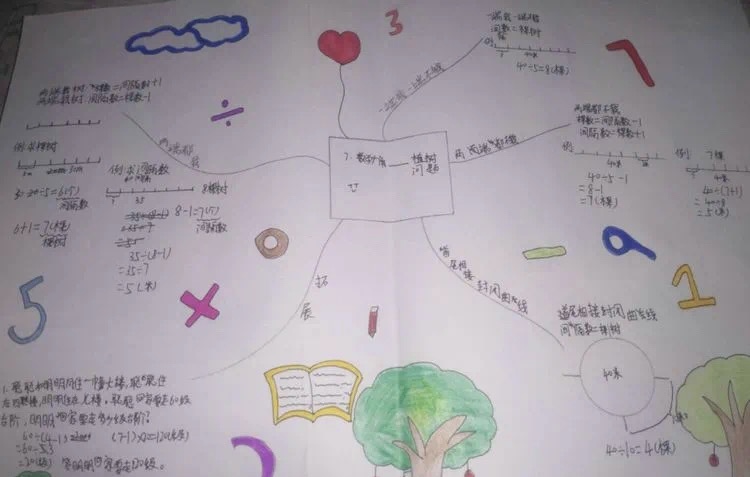 3
一端栽一端不栽
间隔数=棵树
例
40÷5=8(棵)
1
一端栽一端不栽
两端栽树 棵数=间隔数+1
两端栽树 间隔数=棵数-1
÷
两端都
栽
7.数学广角——植树
问题
两端都不栽
两端都不栽
棵数=间隔数-1
间隔数=棵数+1
例
40米
40÷5-1
=8-1
=7(棵)
例: 7棵
40米
40÷(7+1)
=40÷8
=5(米)
例求棵树
5m
30÷5=6(个)
间隔数
6+1=7(棵)
棵树
例求间隔数
8棵树
35
8-1=7(个)
间隔数
35÷(8-1)
=35÷7
=5(米)
拓
展
首尾相接
封闭曲线
5
×
-
9
1
首尾相接封闭曲线
间隔数=棵树
40米
40÷10=4(棵)
1.聪聪和明明同住一幢大楼,聪聪住
在四楼,明明住在七楼。聪聪回家要走60级
台阶,明明回家要走多少级台阶?
60÷(4-1)
=60÷3
=20(级)
(7-1)×20=120(级)
答:明明回家要走120级。